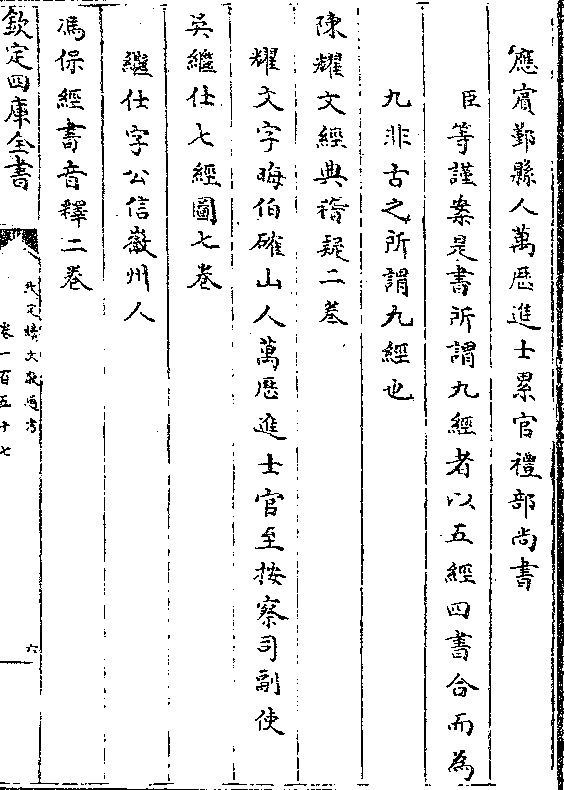 應賔鄞縣人萬厯進士累官禮部尚書
臣等謹案是書所謂九經者以五經四書合而為
九非古之所謂九經也
陳耀文經典稽疑二卷
耀文字晦伯確山人萬厯進士官至按察司副使
吳繼仕七經圖七卷
繼仕字公信徽州人
馮保經書音釋二卷
欽定四庫全書
欽定續文獻通考
卷一百五十七
六